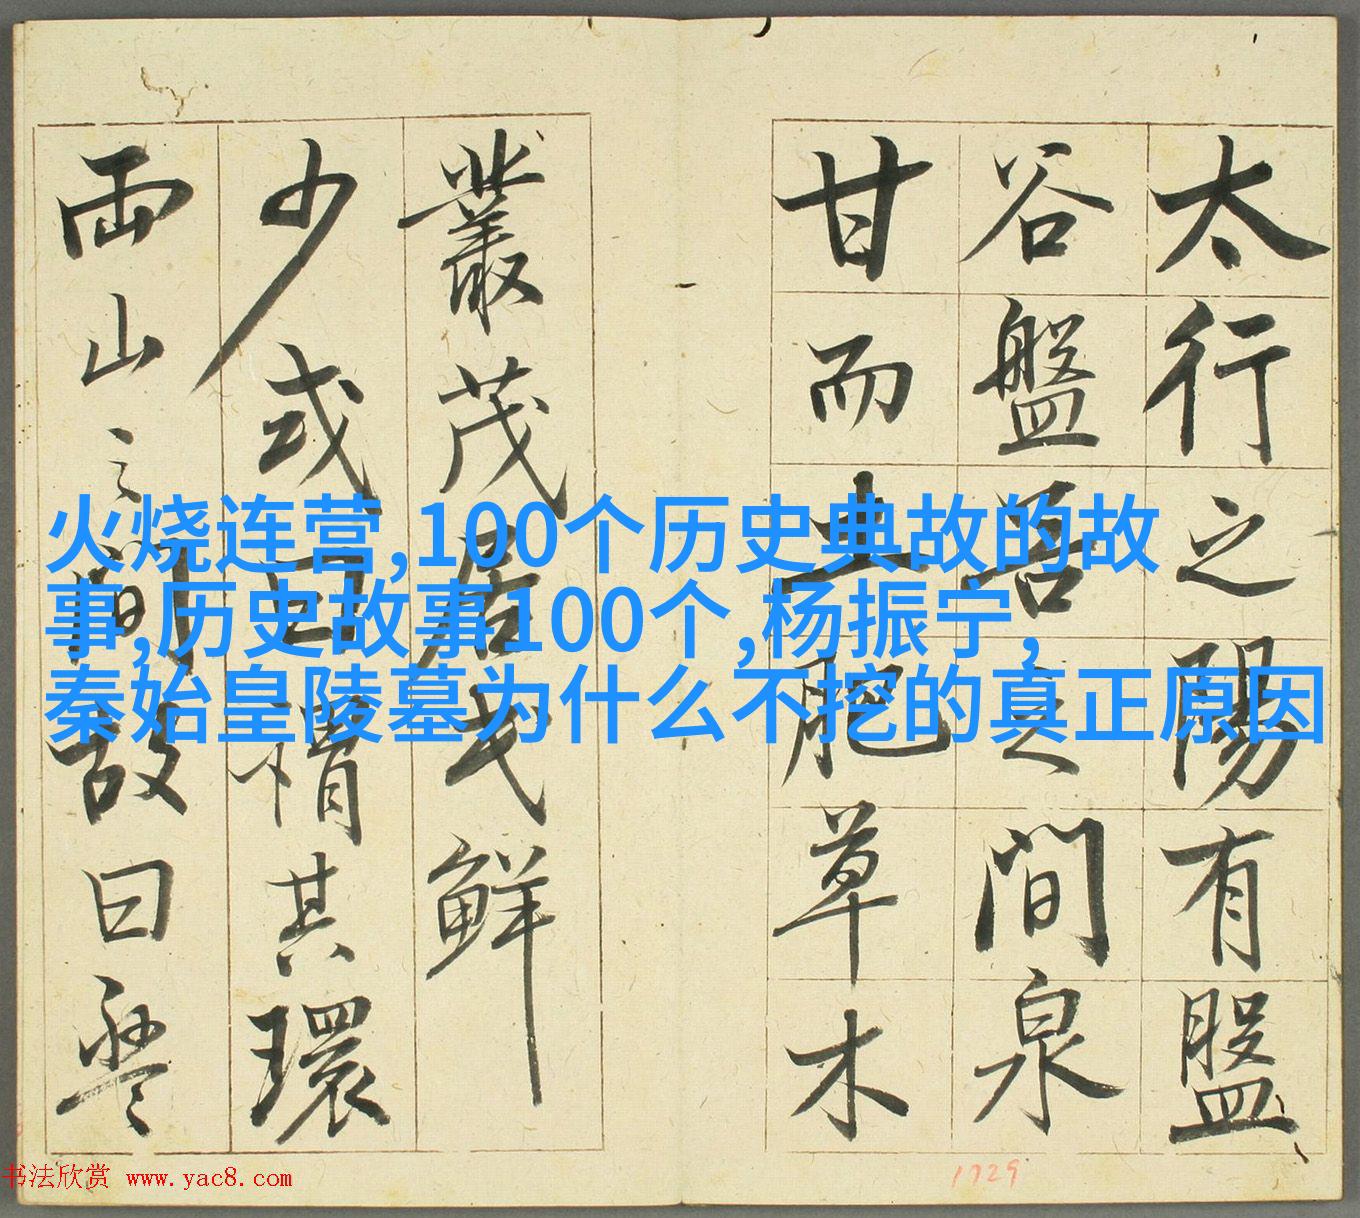 太行之陽有盤
谷盤谷之間泉
甘而土肥草木
叢茂居民鮮
少或曰謂其環
兩山之間故曰盤
火烧连营,100个历史典故的故
事,历史故事100个,杨振宁,
秦始皇陵墓为什么不挖的真正原因
书法欣赏 www.yac8.com
1729